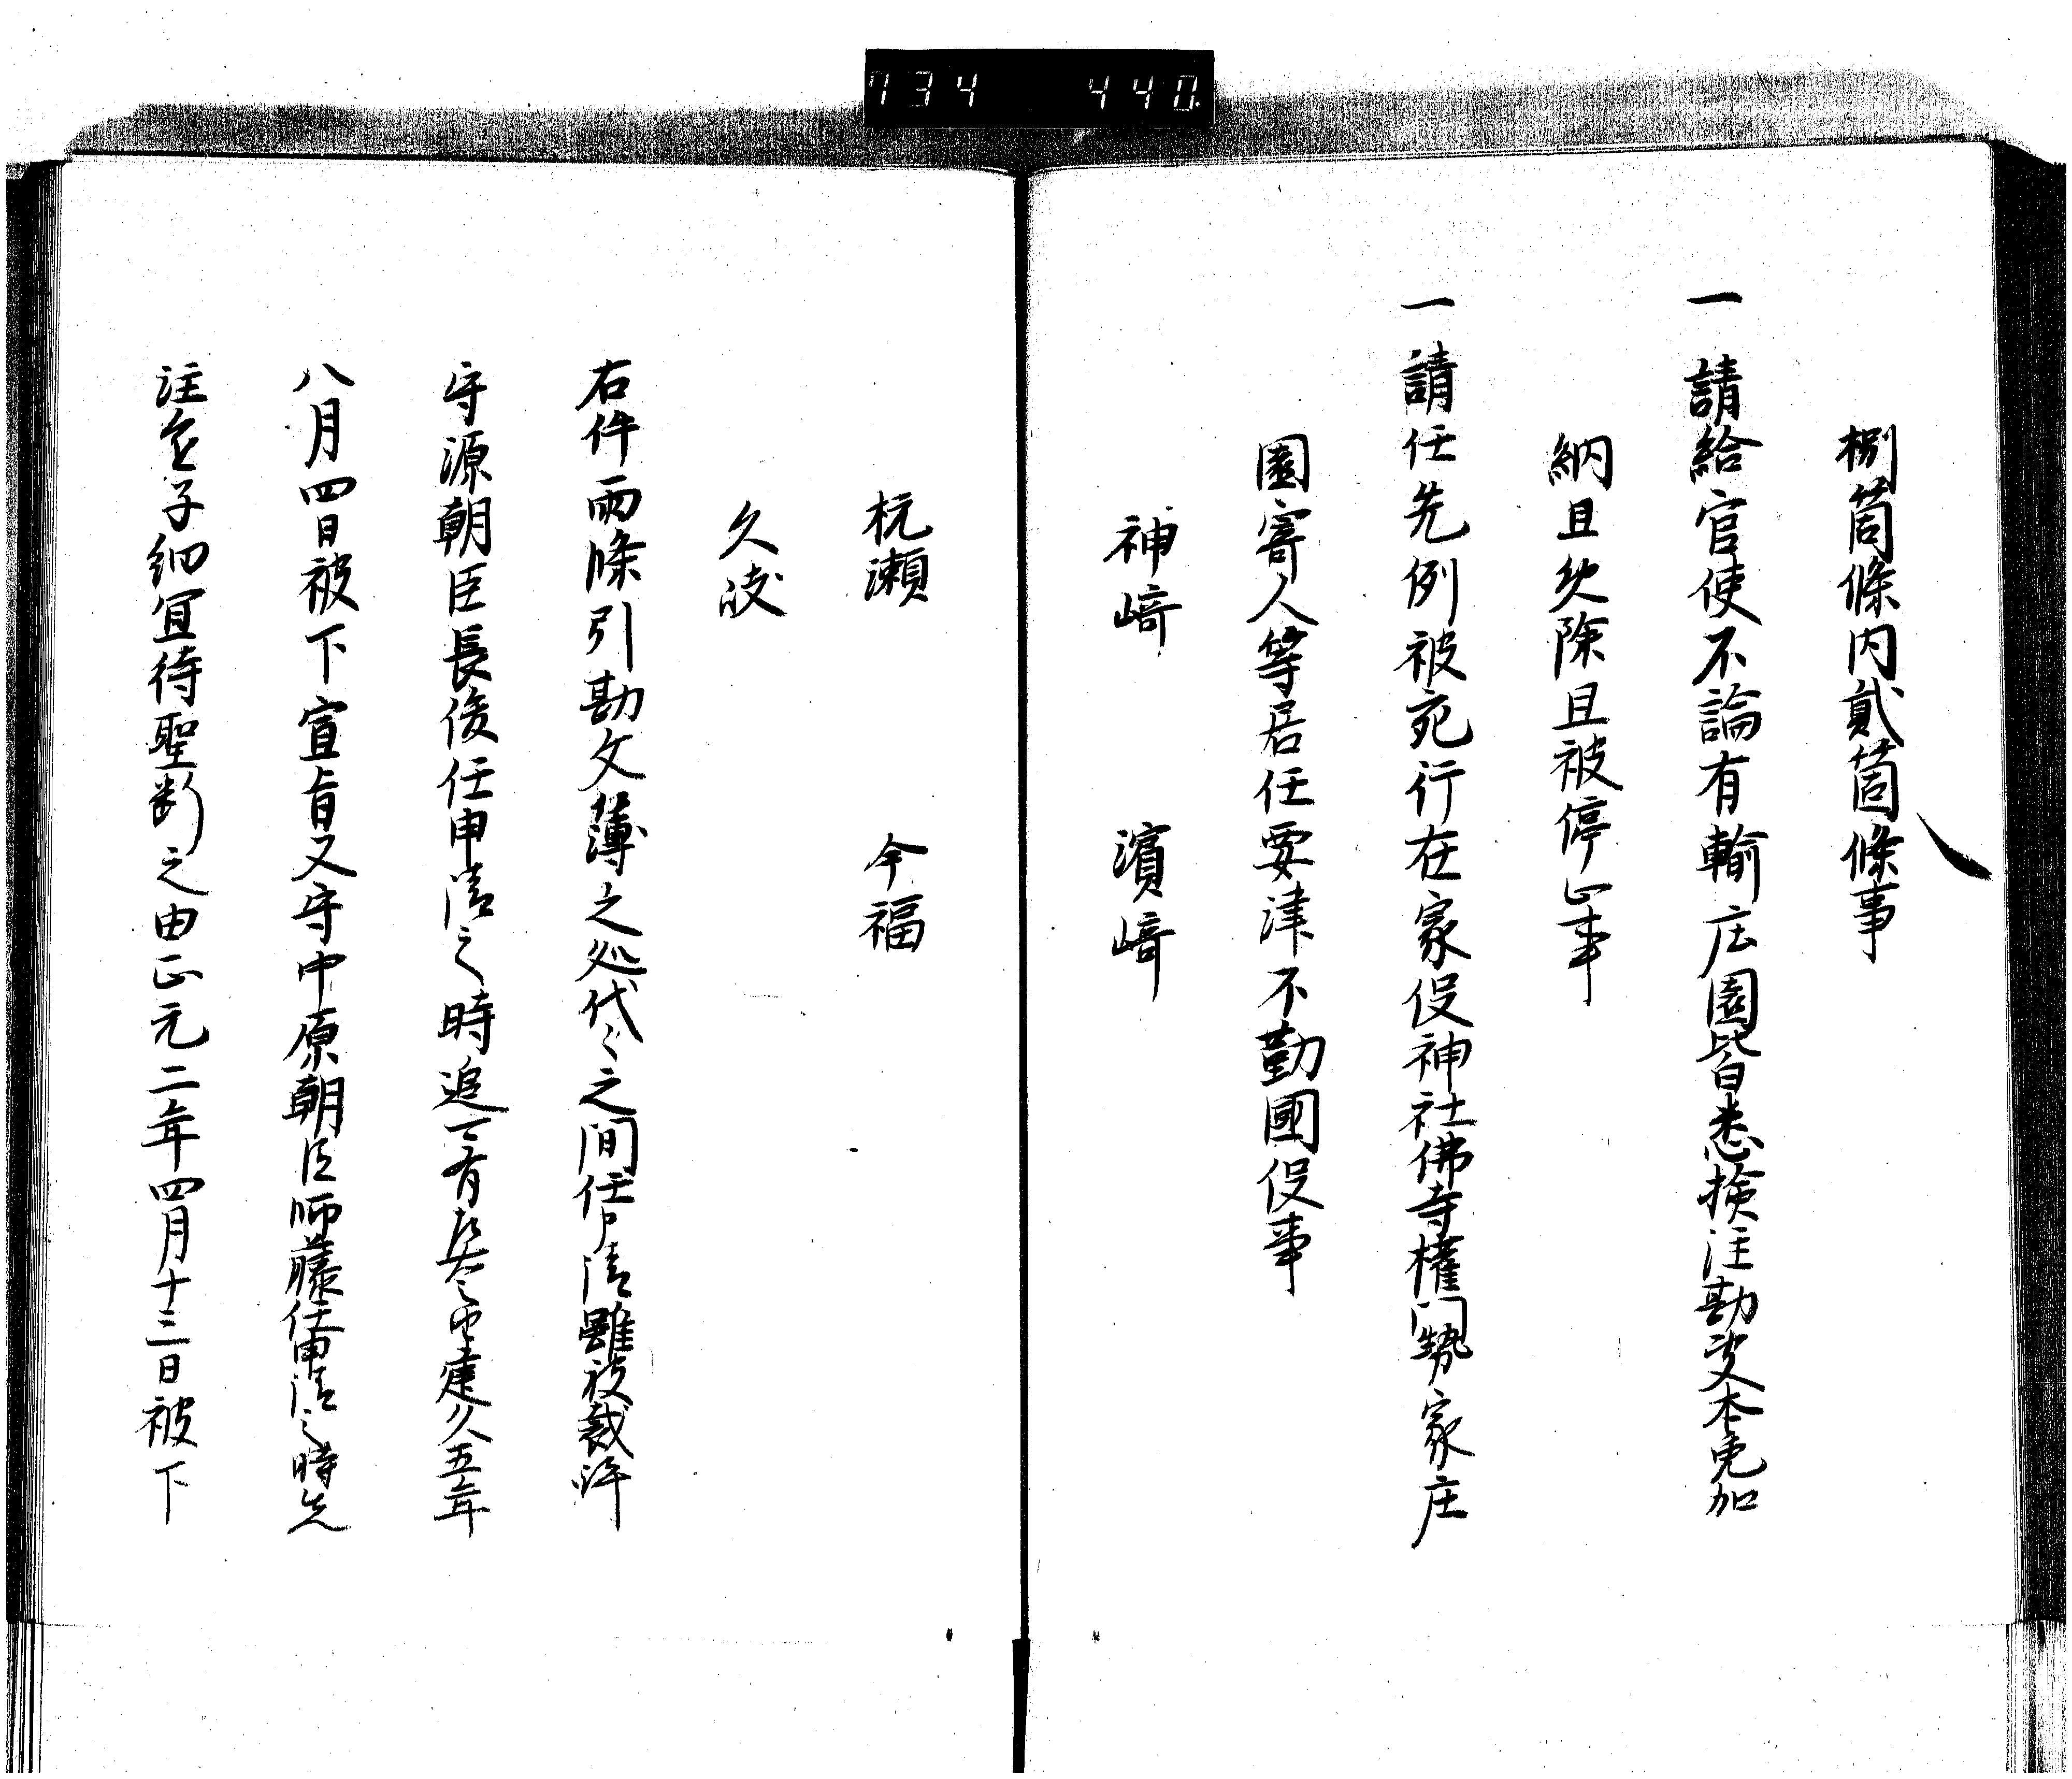 734 440
捌箇條内貳箇條事
一請給官使不論有輸庄園皆悉撿注勘定本免加
納且欠除且被停止事
一請任先例被宛行在家役神社佛寺權門勢家庄
園寄人等居任要津不勤國役事
神﨑 濱﨑
杭瀬 今福
久岐
右件兩條引勘文薄之処代々之間任申請雖被裁許
守源朝臣長俊任申請之時追可有左右之由建久五年
八月四日被下宣旨又守中原朝臣師藤任申請之時先
注進子細宜待聖断之由正元二年四月十三日被下